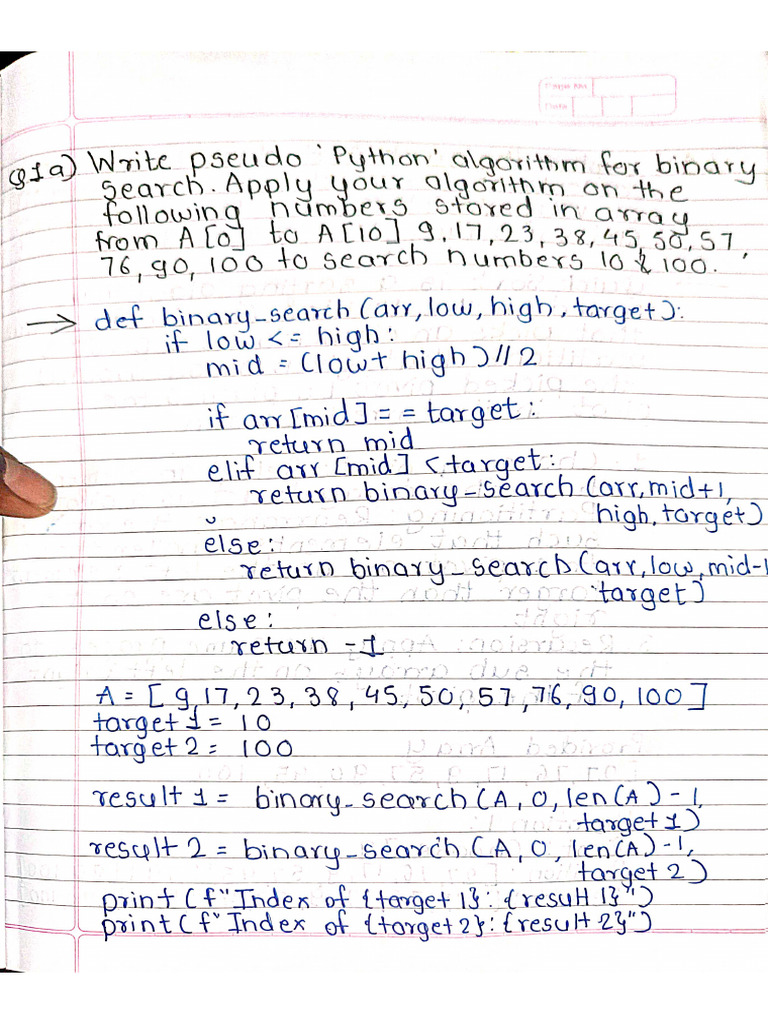 Page No.
Date
Q1a) Write pseudo 'Python' algorithm for binary
search. Apply your algorithm on the
following numbers stored in array
from A[0] to A[10] 9,17,23,38,45,50,57,
76,90,100 to search numbers 10 & 100.
→ def binary_search(arr,low,high,target):
if low <= high:
mid = (low+ high)//2
if arr[mid]= = target:
return mid
elif arr[mid] <target:
return binary_search(arr,mid+1,
high,target)
else:
return binary_search(arr,low,mid-1
target)
else:
return -1
A = [9,17,23,38,45,50,57,76,90,100]
target1 = 10
target2 = 100
result1 = binary_search(A,0,len(A)-1,
target1)
result2 = binary_search(A,0,len(A)-1,
target2)
print(f"Index of {target1}: {result1}")
print(f"Index of {target2}: {result2}")